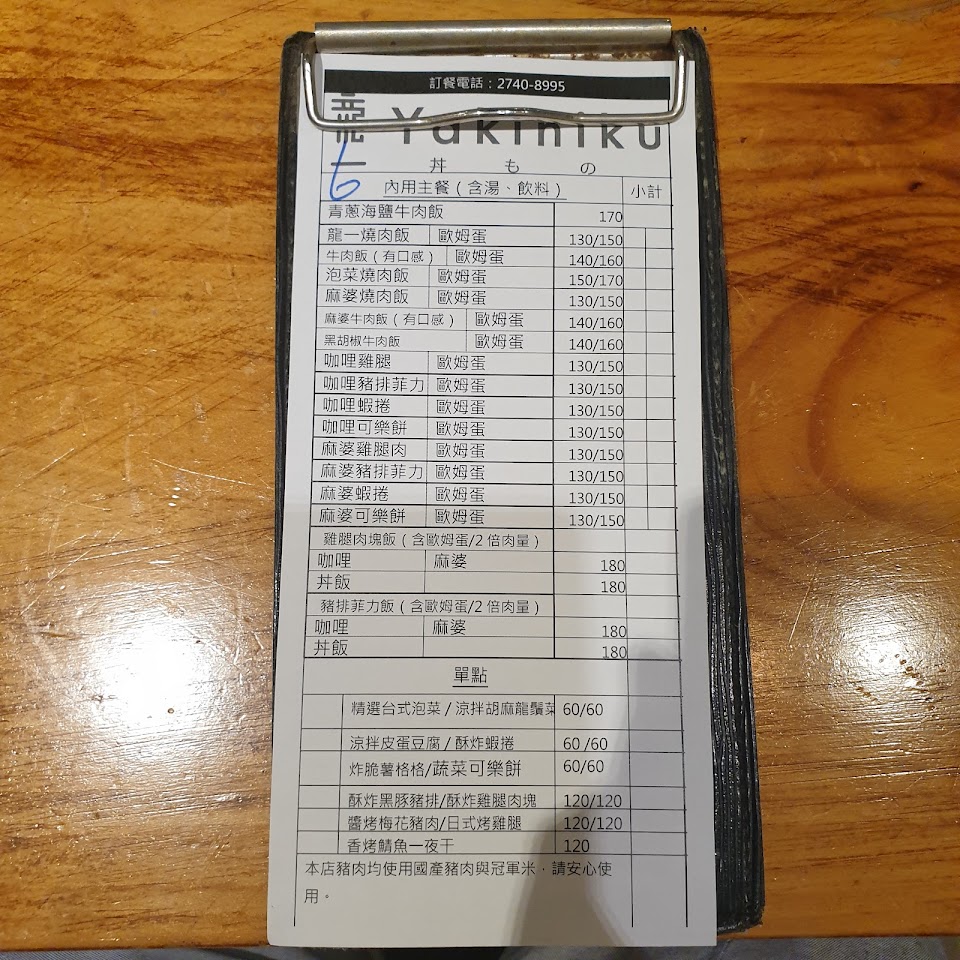 訂餐電話：2740-8995
龍一 Yakiniku
丼もの
6
內用主餐（含湯、飲料） 小計
青蔥海鹽牛肉飯 170
龍一燒肉飯 歐姆蛋 130/150
牛肉飯（有口感） 歐姆蛋 140/160
泡菜燒肉飯 歐姆蛋 150/170
麻婆燒肉飯 歐姆蛋 130/150
麻婆牛肉飯（有口感） 歐姆蛋 140/160
黑胡椒牛肉飯 歐姆蛋 140/160
咖哩雞腿 歐姆蛋 130/150
咖哩豬排菲力 歐姆蛋 130/150
咖哩蝦捲 歐姆蛋 130/150
咖哩可樂餅 歐姆蛋 130/150
麻婆雞腿肉 歐姆蛋 130/150
麻婆豬排菲力 歐姆蛋 130/150
麻婆蝦捲 歐姆蛋 130/150
麻婆可樂餅 歐姆蛋 130/150
雞腿肉塊飯（含歐姆蛋/2 倍肉量）
咖哩 麻婆 180
丼飯 180
豬排菲力飯（含歐姆蛋/2 倍肉量）
咖哩 麻婆 180
丼飯 180
單點
精選台式泡菜 / 涼拌胡麻龍鬚菜 60/60
涼拌皮蛋豆腐 / 酥炸蝦捲 60 /60
炸脆薯格格/蔬菜可樂餅 60/60
酥炸黑豚豬排/酥炸雞腿肉塊 120/120
醬烤梅花豬肉/日式烤雞腿 120/120
香烤鯖魚一夜干 120
本店豬肉均使用國產豬肉與冠軍米，請安心使
用。